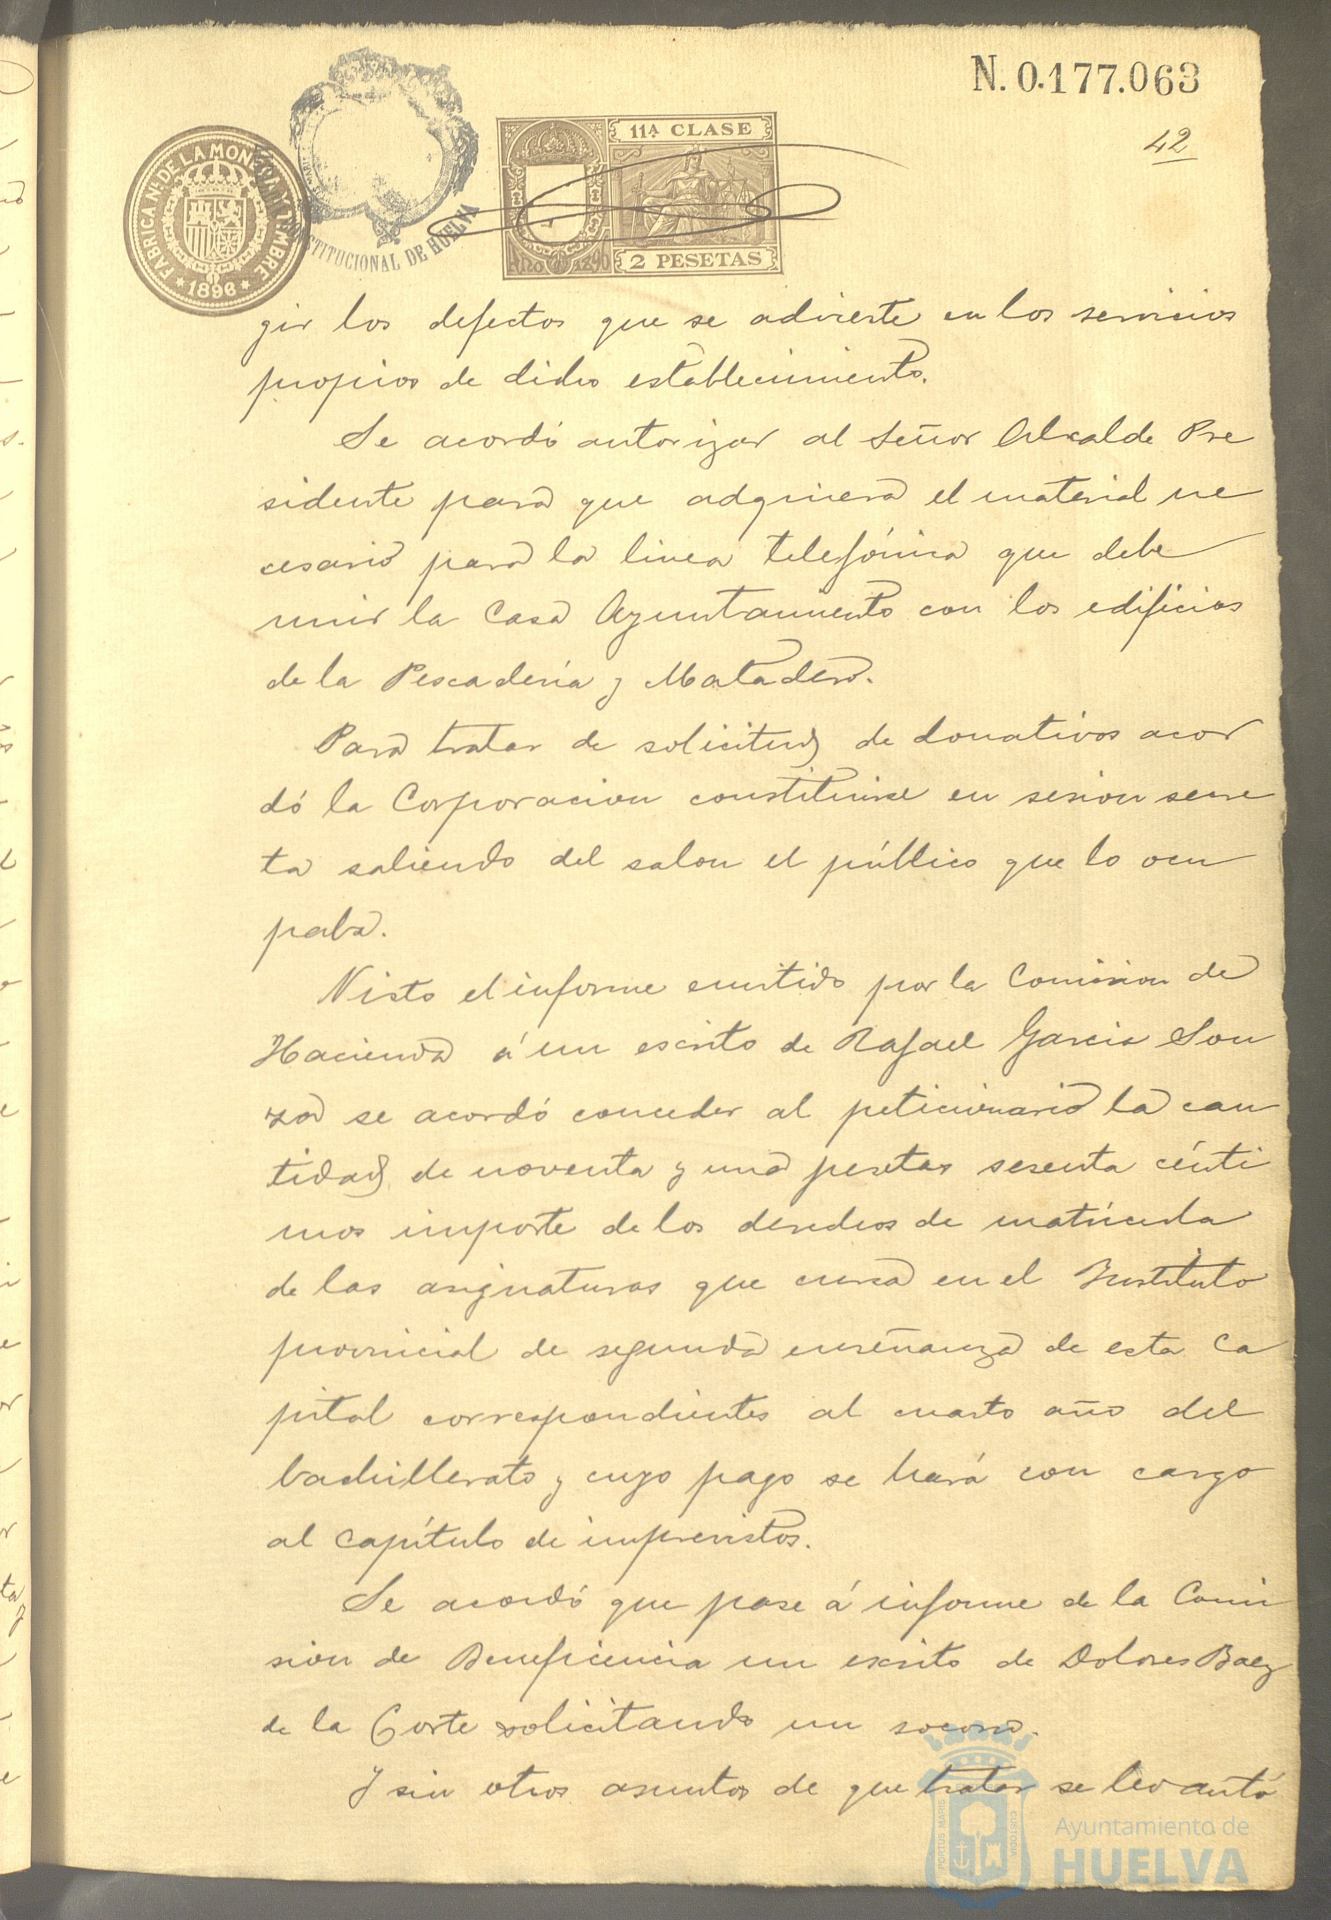 N. 0.177.063
42
FABRICA Nal DE LA MONEDA Y TIMBRE
* 1896 *
CONSTITUCIONAL DE HUELVA
11ª CLASE
2 PESETAS
gir los defectos que se advierte en los servicios
propios de dicho establecimiento.
Se acordó autorizar al Señor Alcalde Pre
sidente para que adquiera el material ne
cesario para la linea telefónica que debe
unir la Casa Ayuntamiento con los edificios
de la Pescadería y Matadero.
Para tratar de solicitud de donativos acor
dó la Corporacion constituirse en sesion secre
ta saliendo del salon el público que lo ocu
paba.
Visto el informe emitido por la Comision de
Hacienda á un escrito de Rafael Garcia Sou
za se acordó conceder al peticionario la can
tidad de noventa y una pesetas sesenta cénti
mos importe de los derechos de matrícula
de las asignaturas que cursa en el Instituto
provincial de segunda enseñanza de esta Ca
pital correspondientes al cuarto año del
bachillerato y cuyo pago se hará con cargo
al capítulo de imprevistos.
Se acordó que pase á informe de la Comi
sion de Beneficencia un escrito de Dolores Baez
de la Corte solicitando un socorro.
Y sin otros asuntos de que tratar se levantó
PORTUS MARIS
CUSTODIA
Ayuntamiento de
HUELVA